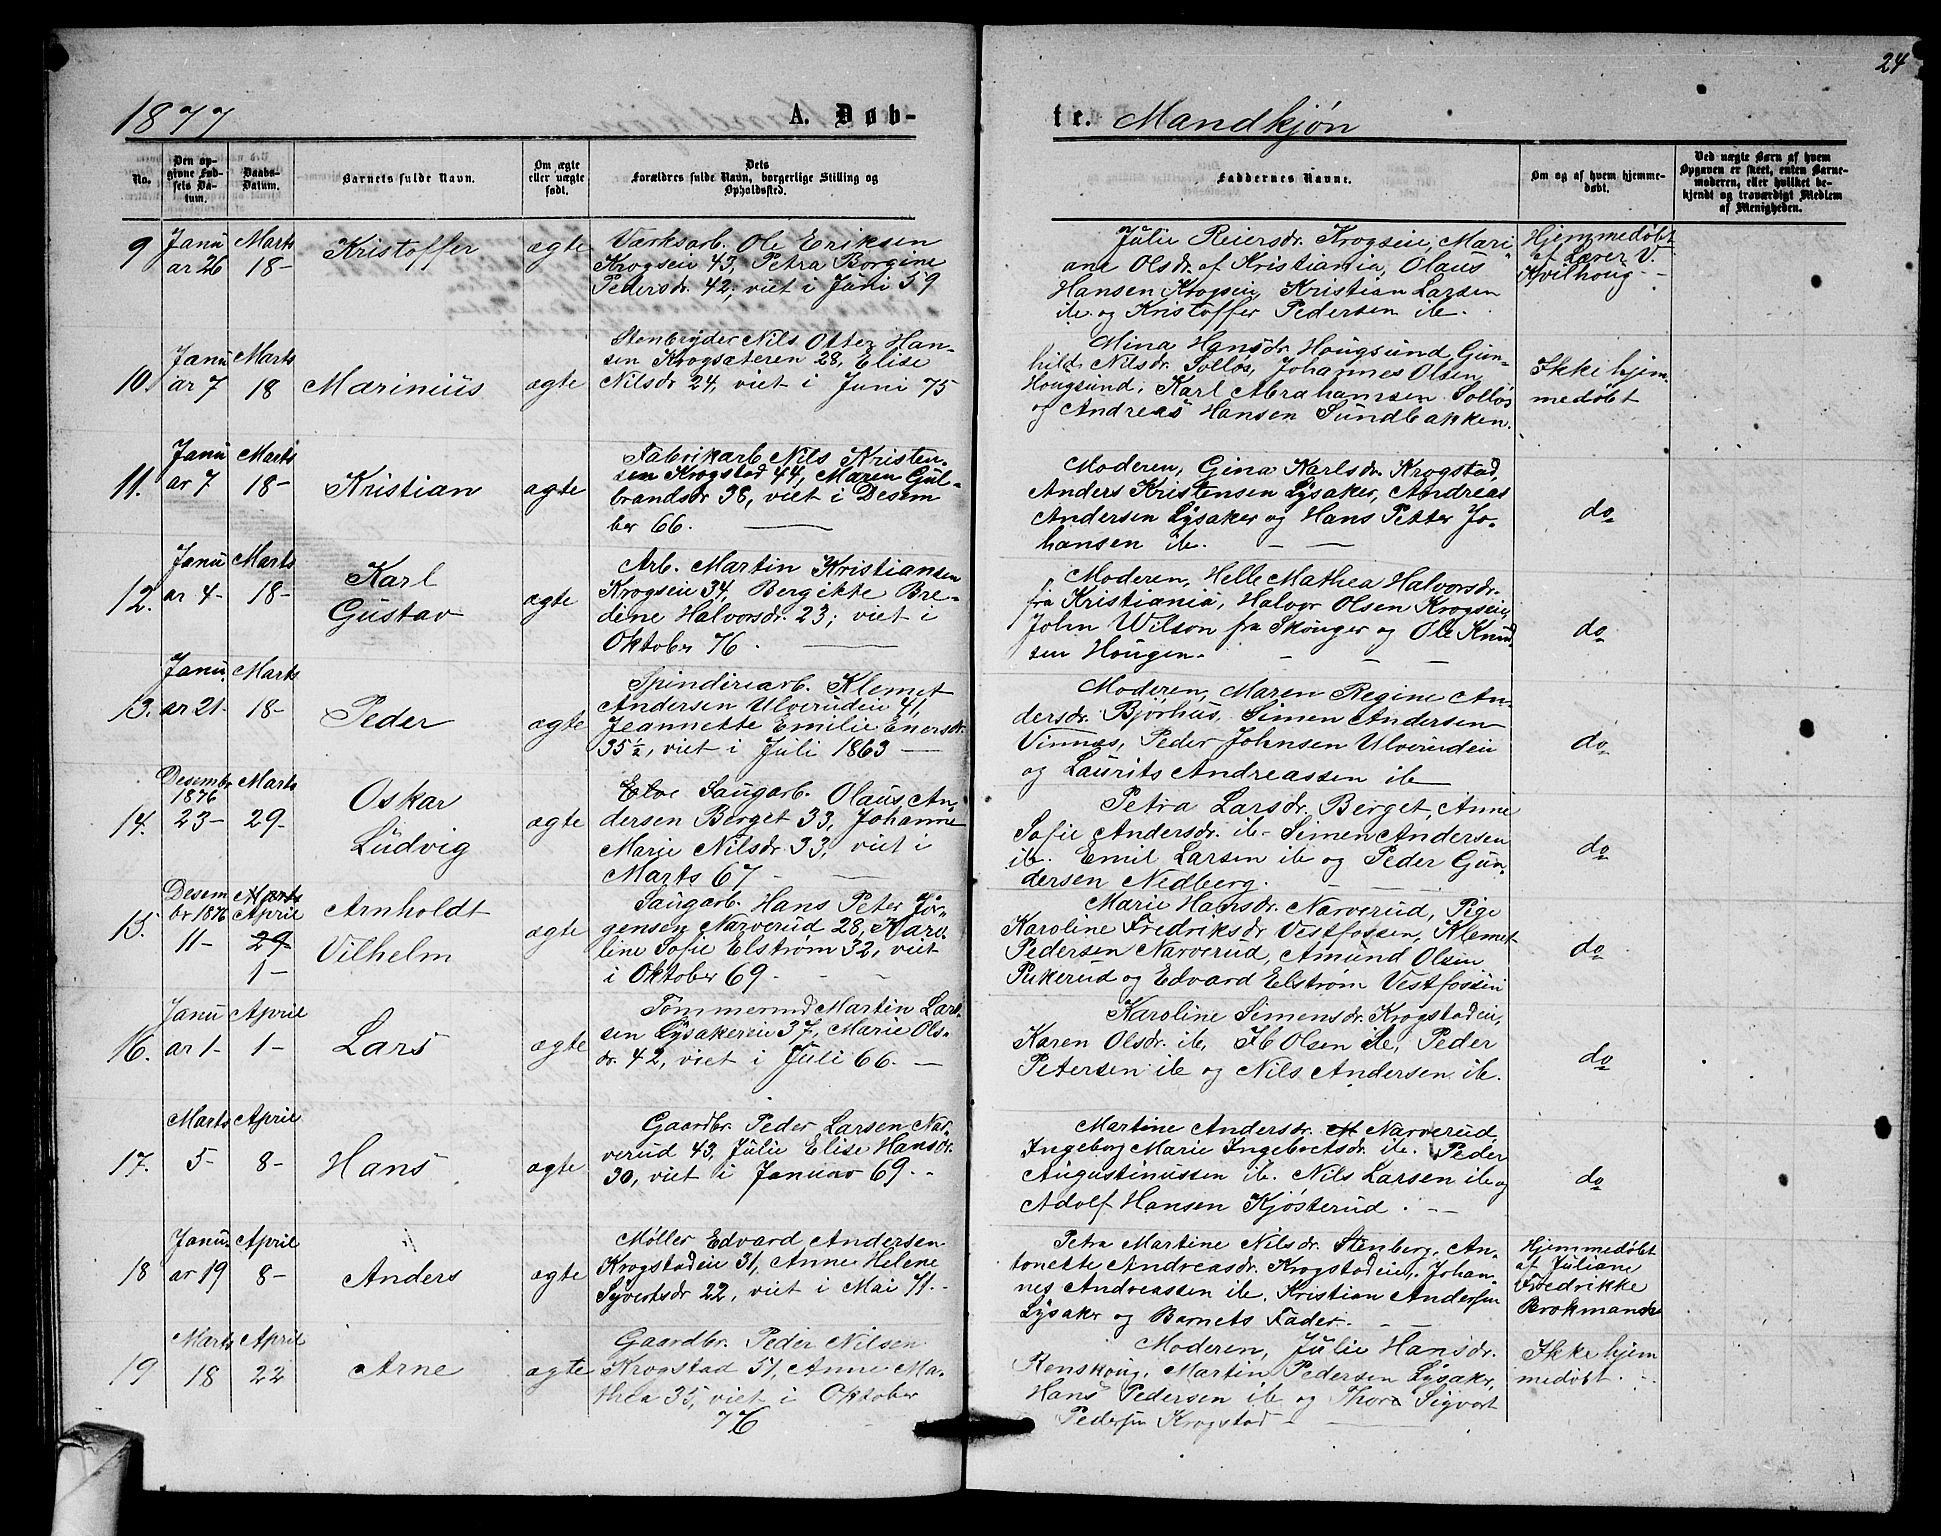 24
1877
A. Døb-
te. Mandkjøn
No.
Den op-
givne Fød-
sels Da-
tum.
Daabs-
Datum.
Barnets fulde Navn.
Om ægte
eller uægte
født.
Dets
Forældres fulde Navn, borgerlige Stilling og
Opholdssted.
Faddernes Navne.
Om og af hvem hjemme-
døbt.
Ved uægte Børn af hvem
Opgaven er skeet, enten Barne-
moderen, eller hvilket be-
kjendt og troværdigt Medlem
af Menigheden.
9
Janu
ar 26
Marts
18-
Kristoffer
ægte
Værksarb. Ole Eriksen
Krogseie 43, Petra Borgine
Pedersdr. 42, viet i Juni 59
Julie Reiersdr. Krogseie, Mari
ane Olsdr. af Kristiania, Olaus
Hansen Krogseie, Kristian Larsen
ib. og Kristoffer Pedersen ib.
Hjemmedøbt
af Lærer V.
Kvilhoug -
10.
Janu
ar 7
Marts
18
Marinius
ægte
Stenbryder Nils Otter Han-
sen Krogsæteren 28, Elise
Nilsdr 24, viet i Juni 75
Mina Hansdr. Hougsund, Gun-
hild Nilsdr. Solløs, Johannes Olsen
Hougsund, Karl Abrahamsen Solløs
og Andreas Hansen Sundbakken.
Ikke hjem-
medøbt
11.
Janu
ar 7
Marts
18-
Kristian
ægte
Fabrikarb Nils Kristen-
sen Krogstad 44, Maren Gul-
brandsdr 38, viet i Desem
ber 66.
Moderen, Gina Karlsdr. Krogstad,
Anders Kristensen Lysaker, Andreas
Andersen Lysaker og Hans Petter Jo-
hansen ib.
do
12.
Janu
ar 4-
Marts
18-
Karl
Gustav
ægte
Arb. Martin Kristiansen
Krogseie 34, Bergekte Bre-
dine Halvorsdr. 23; viet i
Oktober 76.
Moderen, Helle Mathea Halvorsdr.
fra Kristiania, Halvor Olsen Krogseie,
John Wilson fra Skouger og Ole Knud
sen Hougen.
do
13.
Janu.
ar 21-
Marts
18-
Peder
ægte
Spinderiarb. Klemet
Andersen Ulverudeie 41,
Jeannette Emilie Enersdr.
35½, viet i Juli 1863
Moderen, Maren Regine An-
dersdr. Bjørhus, Simen Andersen
Vinnæs, Peder Johnsen Ulverudeie
og Laurits Andreassen ib
do
14.
Desembr
1876
23-
Marts
29-
Oskar
Ludvig
ægte
Saugarb. Olaus An-
dersen Berget 33, Johanne
Marie Nilsdr. 33, viet i
Marts 67-
Petra Larsdr. Berget, Anne
Sofie Andersdr. ib- Simen Andersen
ib. Emil Larsen ib og Peder Gun-
dersen Nedberg.
do
15.
Desem
br 1876
11-
Marts
April
29
1-
Arnholdt
Vilhelm
ægte
Saugarb. Hans Peter Jør-
gensen Narverud 28, Karo-
line Sofie Elstrøm 32, viet
i Oktober 69.
Marie Hansdr. Narverud, Pige
Karoline Fredriksdr Vestfossen, Klemet
Pedersen Narverud, Amund Olsen
Pukerud og Edvard Elstrøm Vestfossen
do
16.
Janu
ar 1-
April
1-
Lars
ægte
Tømmermd Martin Lar-
sen Lysakereie 37, Marie Ols-
dr. 42, viet i Juli 66.
Karoline Simensdr. Krogstadeie,
Karen Olsdr. ib. Ib Olsen ib, Peder
Petersen ib og Nils Andersen ib.
do
17.
Marts
5-
April
8-
Hans
ægte
Gaardbr. Peder Larsen Nar-
verud 43, Julie Elise Hansdr.
30, viet i Januar 69.
Martine Andersdr. Narverud,
Ingeborg Marie Ingebretsdr. ib. Peder
Augustinussen ib. Nils Larsen ib og
Adolf Hansen Kjøsterud.
do
18
Janu-
ar 19
April
8-
Anders
ægte
Møller Edvard Andersen
Krogstadeie 31, Anne Helene
Syvertsdr 22, viet i Mai 71.
Petra Martine Nilsdr. Stenberg, An-
tonette Andreasdr. Krogstadeie, Johan-
nes Andreassen ib. Kristian Andersen
Lysaker og Barnets Fader.
Hjemmedøbt
af Juliane
Fredrikke
Brokmanske
19
Marts
18
April
22
Arne
ægte
Gaardbr. Peder Nilsen
Krogstad 51, Anne Ma-
thea 35, viet i Oktober
76
Moderen, Julie Hansdr.
Renskoug, Martin Pedersen Lysaker,
Hans Pedersen ib og Thora Sigvart
Pedersen Krogstad
Ikke hjem
medøbt.